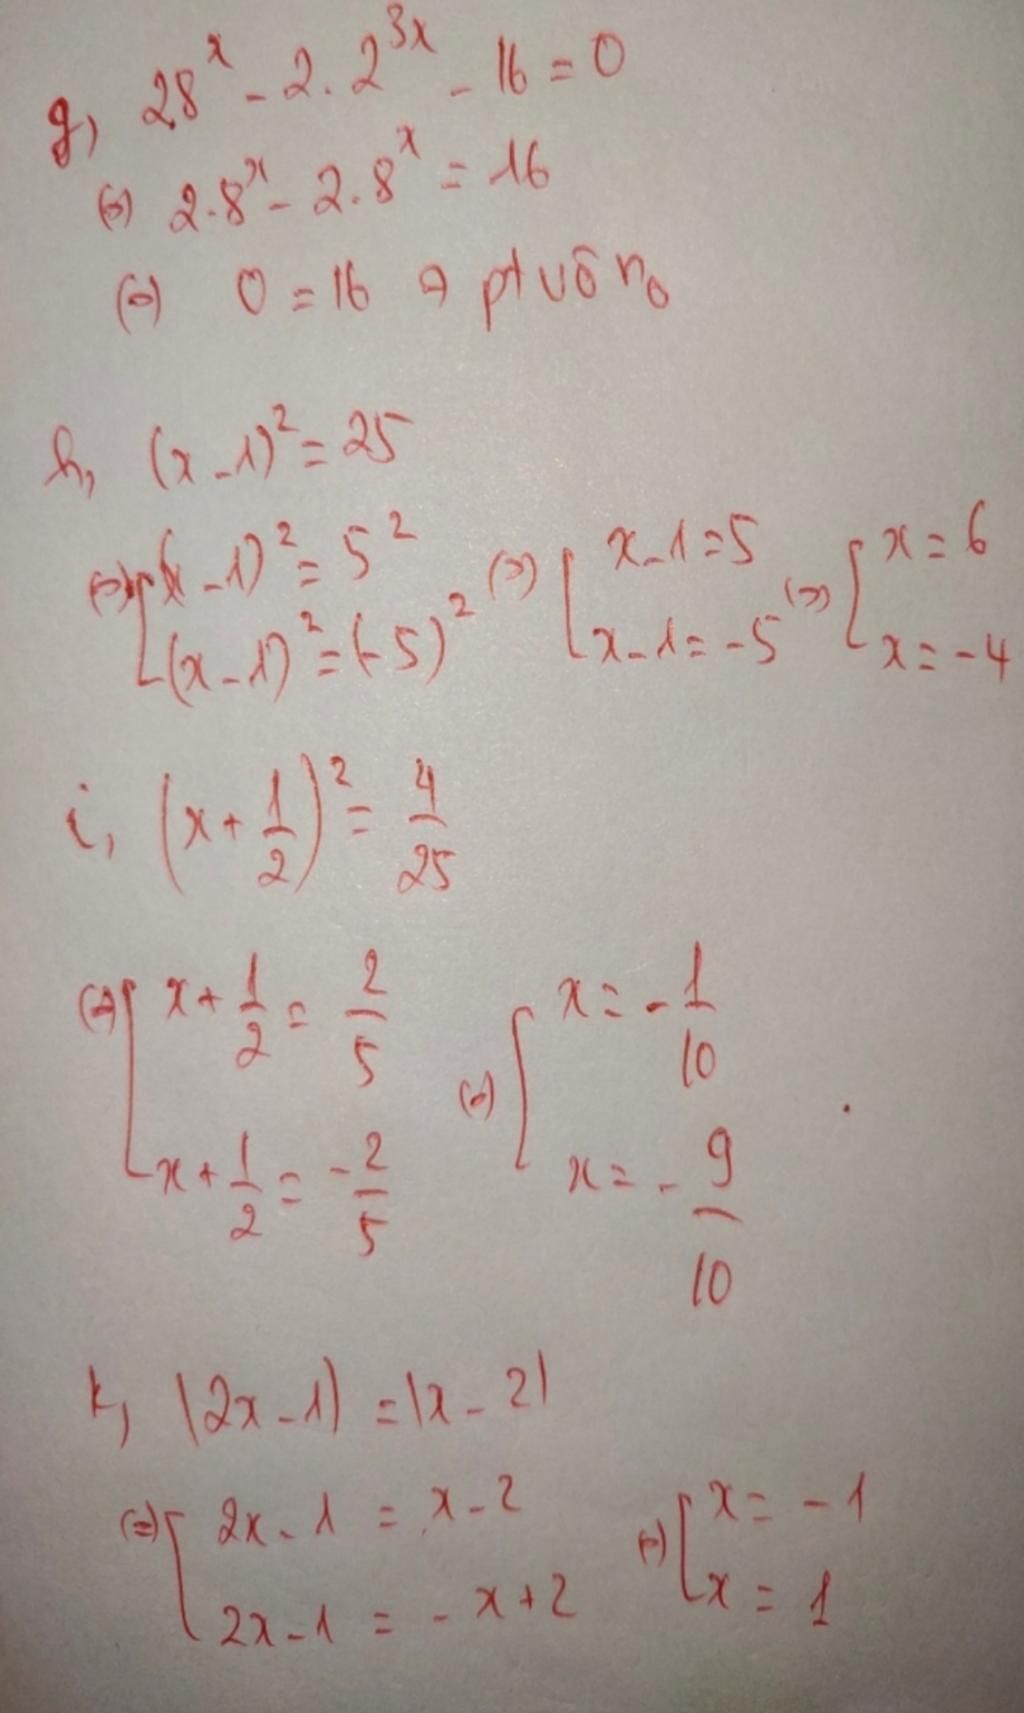 g, 28^x - 2. 2^{3x} - 16 = 0
⇔ 2.8^x - 2.8^x = 16
⇔ 0 = 16 → pt vô n_0
h, (x - 1)^2 = 25
⇔ [ (x - 1)^2 = 5^2 ; (x - 1)^2 = (-5)^2 ⇔ [ x - 1 = 5 ; x - 1 = -5 ⇔ [ x = 6 ; x = -4
i, (x + 1/2)^2 = 4/25
⇔ [ x + 1/2 = 2/5 ; x + 1/2 = -2/5 ⇔ [ x = -1/10 ; x = -9/10
k, |2x - 1| = |x - 2|
⇔ [ 2x - 1 = x - 2 ; 2x - 1 = -x + 2 ⇔ [ x = -1 ; x = 1